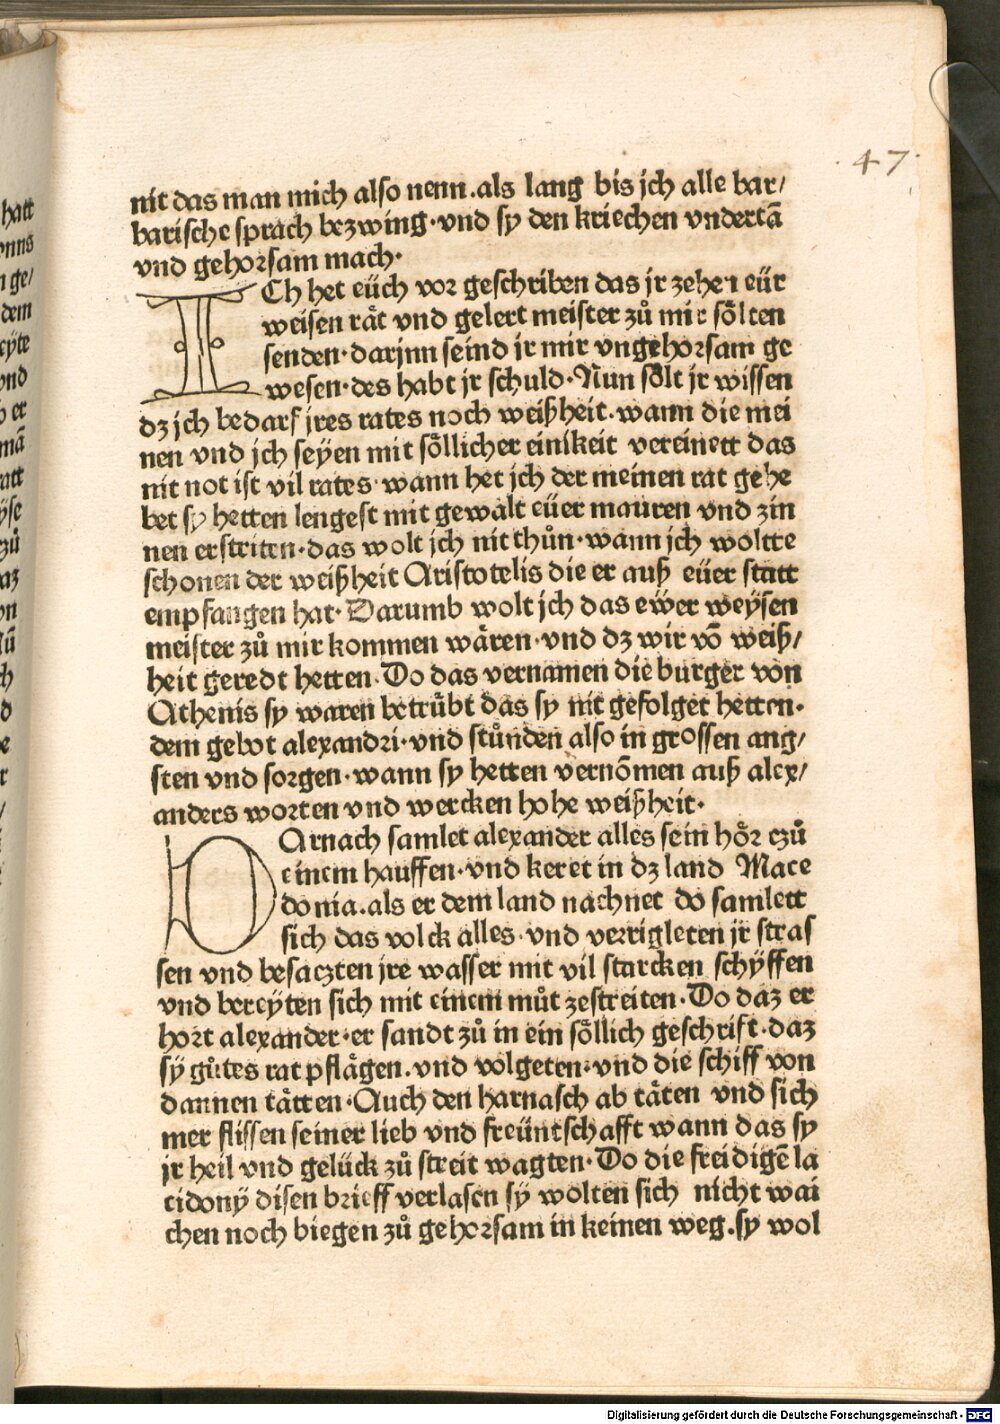 47
nit das man mich also nenn. als lang bis jch alle bar/
barische sprach bezwing· vnd sy den kriechen vndertā
vnd gehorsam mach·
ICh het eüch vor geschriben das jr zehen eür
weisen rät vnd gelert meister zů mir sölten
senden· darjnn seind jr mir vngehorsam ge
wesen· des habt jr schuld· Nun sölt jr wissen
dz jch bedarf jres rates noch weißheit· wann die mei
nen vnd jch seyen mit söllicher einikeit vereinett das
nit not ist vil rates· wann het jch der meinen rat gehe
bet sy hetten lengest mit gewalt eüer mauren vnd zin
nen erstriten· das wolt jch nit thůn· wann jch woltte
schonen der weißheit Aristotelis die er auß eüer statt
empfangen hat· Darumb wolt jch das ewer weysen
meister zů mir kommen wären· vnd dz wir vō weiß/
heit geredt hetten· Do das vernamen die burger von
Athenis sy waren betrübt das sy nit gefolget hetten·
dem gebot alexandri· vnd stůnden also in grossen ang/
sten vnd sorgen· wann sy hetten vernōmen auß alex/
anders worten vnd wercken hohe weißheit·
DArnach samlet alexander alles sein hör czů
einem hauffen· vnd keret in dz land Mace
donia. als er dem land nachnet do samlett
sich das volck alles· vnd verrigleten jr stras
sen vnd besaczten jre wasser mit vil starcken schyffen
vnd bereyten sich mit einem můt zestreiten· Do daz er
hort alexander· er sandt zů in ein söllich geschrift· daz
sy gůtes rat pflägen. vnd volgeten· vnd die schiff von
dannen tätten· Auch den harnasch ab täten vnd sich
mer flissen seiner lieb vnd freüntschafft wann das sy
jr heil vnd gelück zů streit wagten· Do die freidigē la
cidony disen brieff verlasen sy wolten sich nicht wai
chen noch biegen zů gehorsam in keinen weg. sy wol
Digitalisierung gefördert durch die Deutsche Forschungsgemeinschaft - DFG